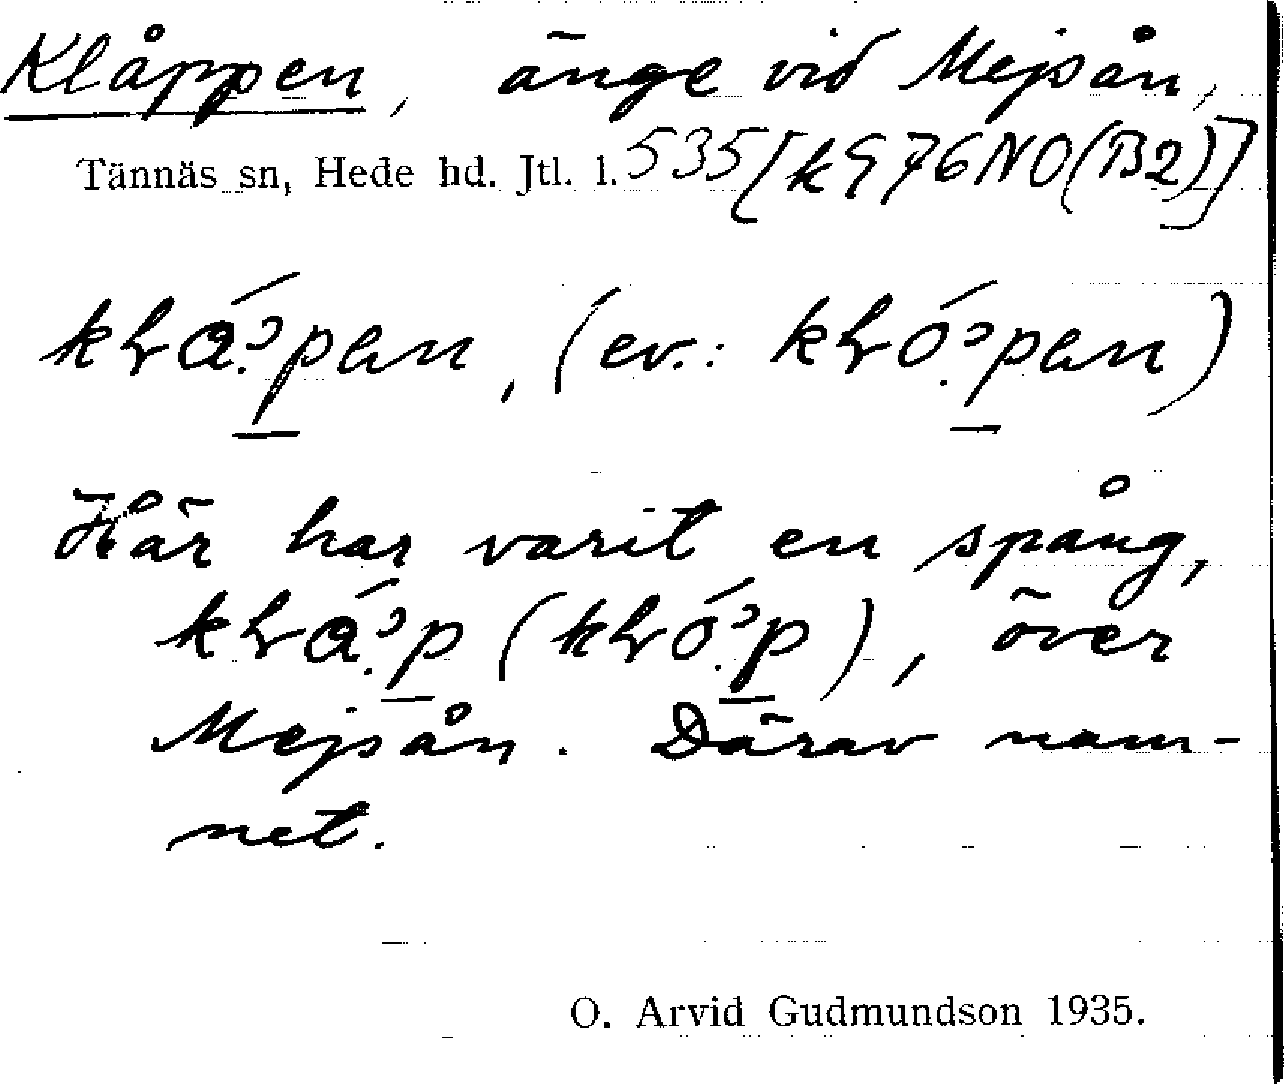 Klåppen, änge vid Mejsån,
Tännäs sn, Hede hd. Jtl. l. 535 [k976NO(B2)]
(ev.:
Här har varit en spång,
över
Mejsån. Därav nam-
net.
O. Arvid Gudmundson 1935.